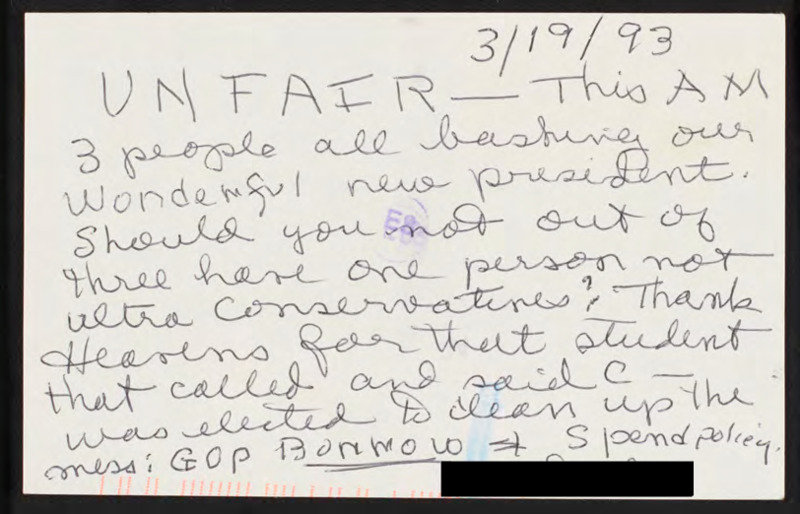 3/19/93
UNFAIR — This AM
3 people all bashing our
Wonderful new president.
Should you not out of
three have one person not
ultra conservatives? Thank
Heavens for that student
that called and said C —
was elected to clean up the
mess: GOP BORROW + Spend policy.